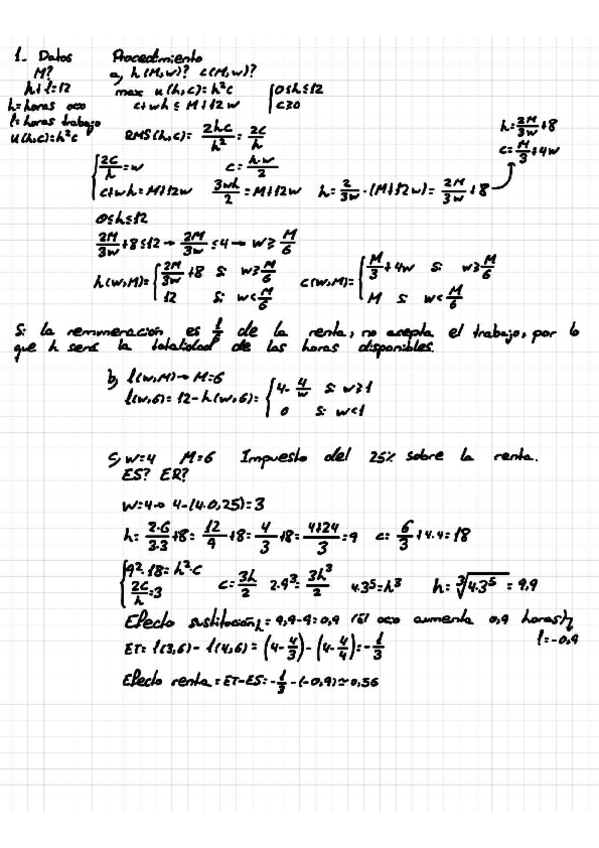 1- Datos Procedimiento
M? a) h(M,w)? c(M,w)?
h+l=12 max u(h,c)=h²c {0≤h≤12
h=horas ocio c+wh≤M+12w c≥0
l=horas trabajo
u(h,c)=h²c RMS(h,c)= 2hc/h² = 2c/h h=2M/3w+8
c=M/3+4w
{2c/h=w c=h·w/2
c+wh=M+12w 3wh/2=M+12w h=2/3w·(M+12w)=2M/3w+8
0≤h≤12
2M/3w+8≤12→2M/3w≤4→w≥M/6
h(w,M)={2M/3w+8 si w≥M/6 c(w,M)={M/3+4w si w≥M/6
12 si w<M/6 M si w<M/6
Si la remuneración es 1/6 de la renta, no acepta el trabajo, por lo
que h será la totalidad de las horas disponibles.
b) l(w,M)→M=6
l(w,6)=12-h(w,6)={4-4/w si w≥1
0 si w<1
c) w=4 M=6 Impuesto del 25% sobre la renta.
ES? ER?
w=4→4-(4·0,25)=3
h=2·6/3·3+8=12/9+8=4/3+8=4+24/3=9 c=6/3+4·4=18
{9²·18=h²·c
2c/h=3 c=3h/2 2·9³=3h³/2 4·3⁵=h³ h=∛4·3⁵=9,9
Efecto sustitución h=9,9-9=0,9 (El ocio aumenta 0,9 horas)
l=-0,9
ET=l(3,6)-l(4,6)=(4-4/3)-(4-4/4)=-1/3
Efecto renta=ET-ES=-1/3-(-0,9)≈0,56